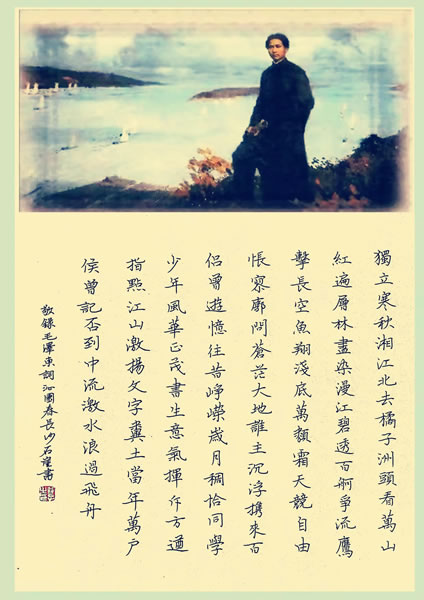 獨立寒秋湘江北去橘子洲頭看萬山
紅遍層林盡染漫江碧透百舸爭流鷹
擊長空魚翔淺底萬類霜天競自由
悵寥廓問蒼茫大地誰主沉浮携來百
侶曾遊憶往昔崢嶸歲月稠恰同學
少年風華正茂書生意氣揮斥方遒
指點江山激揚文字糞土當年萬户
侯曾記否到中流激水浪遏飛舟
敬錄毛澤東詞沁園春長沙石書